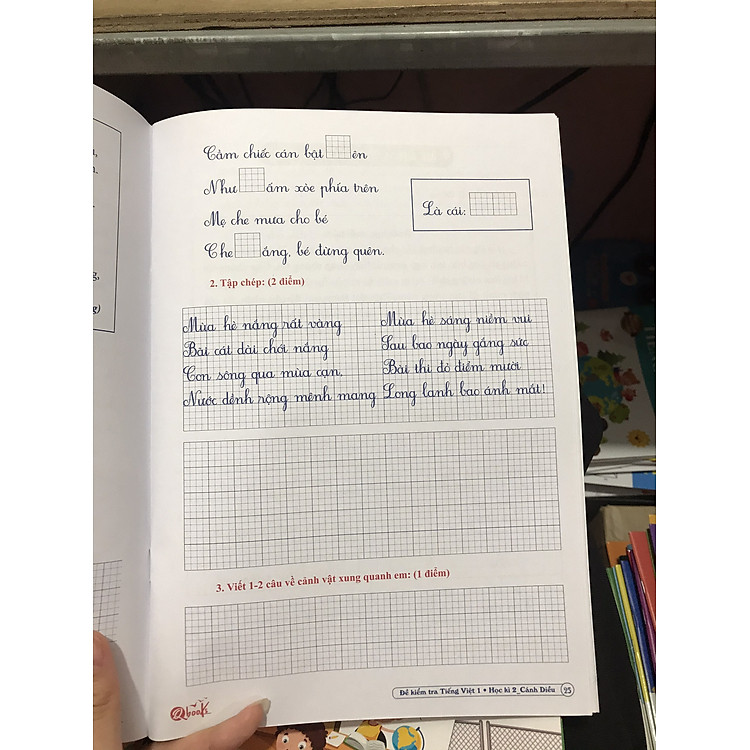 Cầm chiếc cán bật ên
Như ấm xòe phía trên
Mẹ che mưa cho bé
Che ắng, bé đừng quên.
Là cái:
2. Tập chép: (2 điểm)
Mùa hè nắng rất vàng
Bãi cát dài chói nắng
Con sông qua mùa cạn.
Nước dềnh rộng mênh mang
Mùa hè sáng niềm vui
Sau bao ngày gắng sức
Bài thi đỏ điểm mười
Long lanh bao ánh mắt!
3. Viết 1-2 câu về cảnh vật xung quanh em: (1 điểm)
Qbooks
Đề kiểm tra Tiếng Việt 1 • Học kì 2_Cánh Diều 25